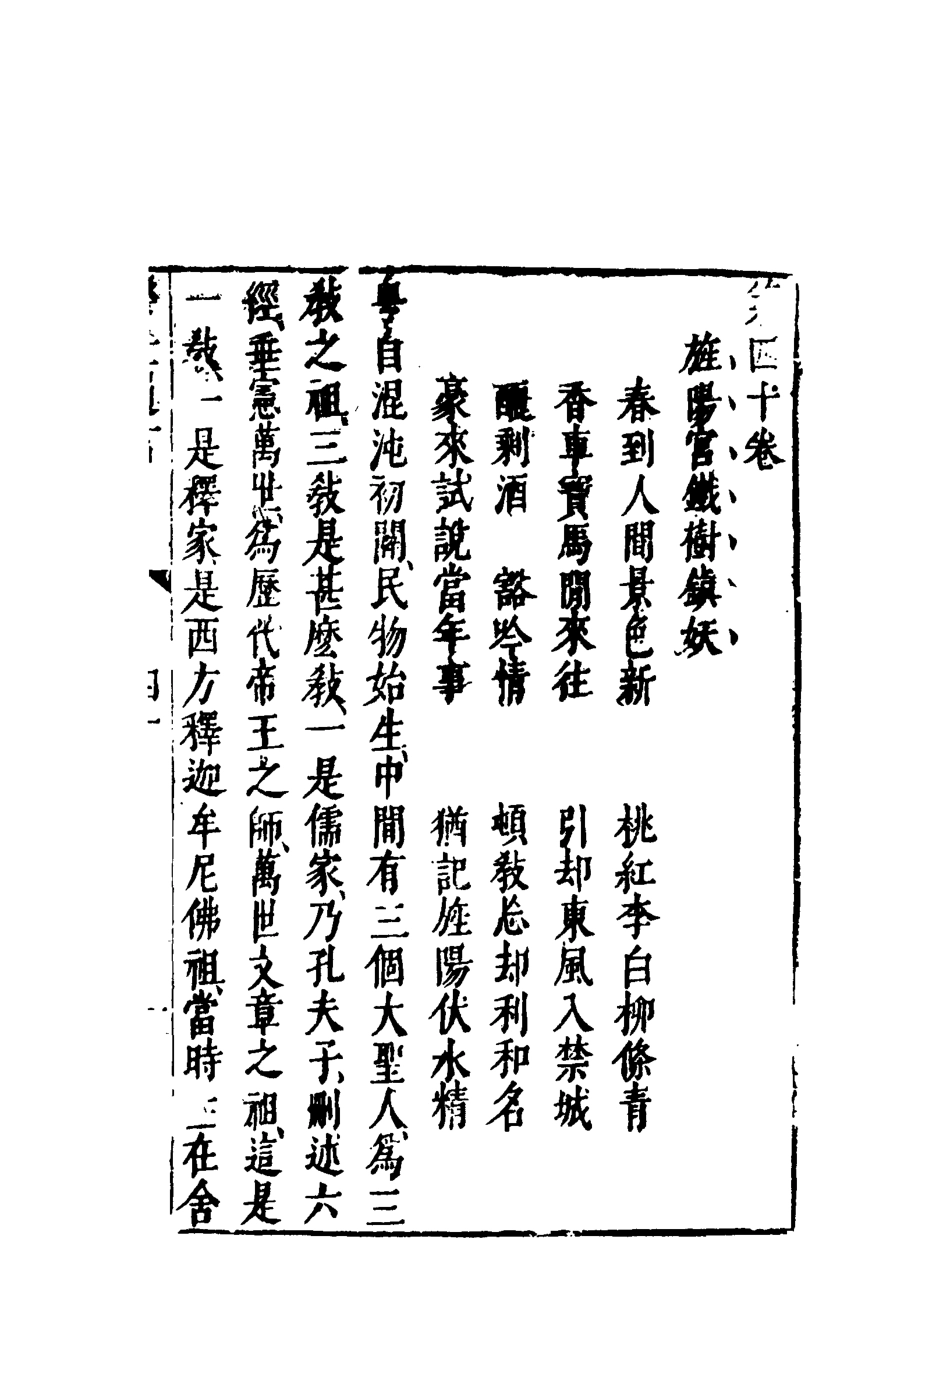 第四十卷
旌陽宮鐵樹鎮妖
春到人間景色新　桃紅李白柳條青
香車寶馬閒來往　引却東風入禁城
釃剩酒　豁吟情　頓教忘却利和名
豪來試說當年事　猶記旌陽伏水精
粤自混沌初開、民物始生、中間有三個大聖人、爲三
教之祖、三教是甚麼教、一是儒家、乃孔夫子、刪述六
經、垂憲萬世、爲歷代帝王之師、萬世文章之祖、這是
一教、一是釋家、是西方釋迦牟尼佛祖、當時生在舍